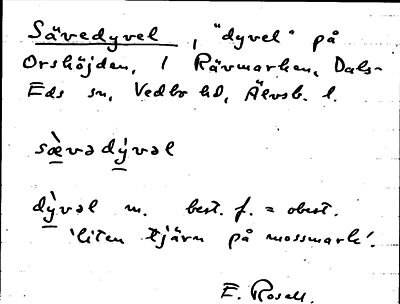 Sävedyvel, "dyvel" på
Orshöjden, i Rävmarken, Dals-
Eds sn, Vedbo hd, Älvsb. l.
sæ̀vədý̀vəl
dỳvəl m. best. f. = obest.
'liten tjärn på mossmark'.
E. Rosell.